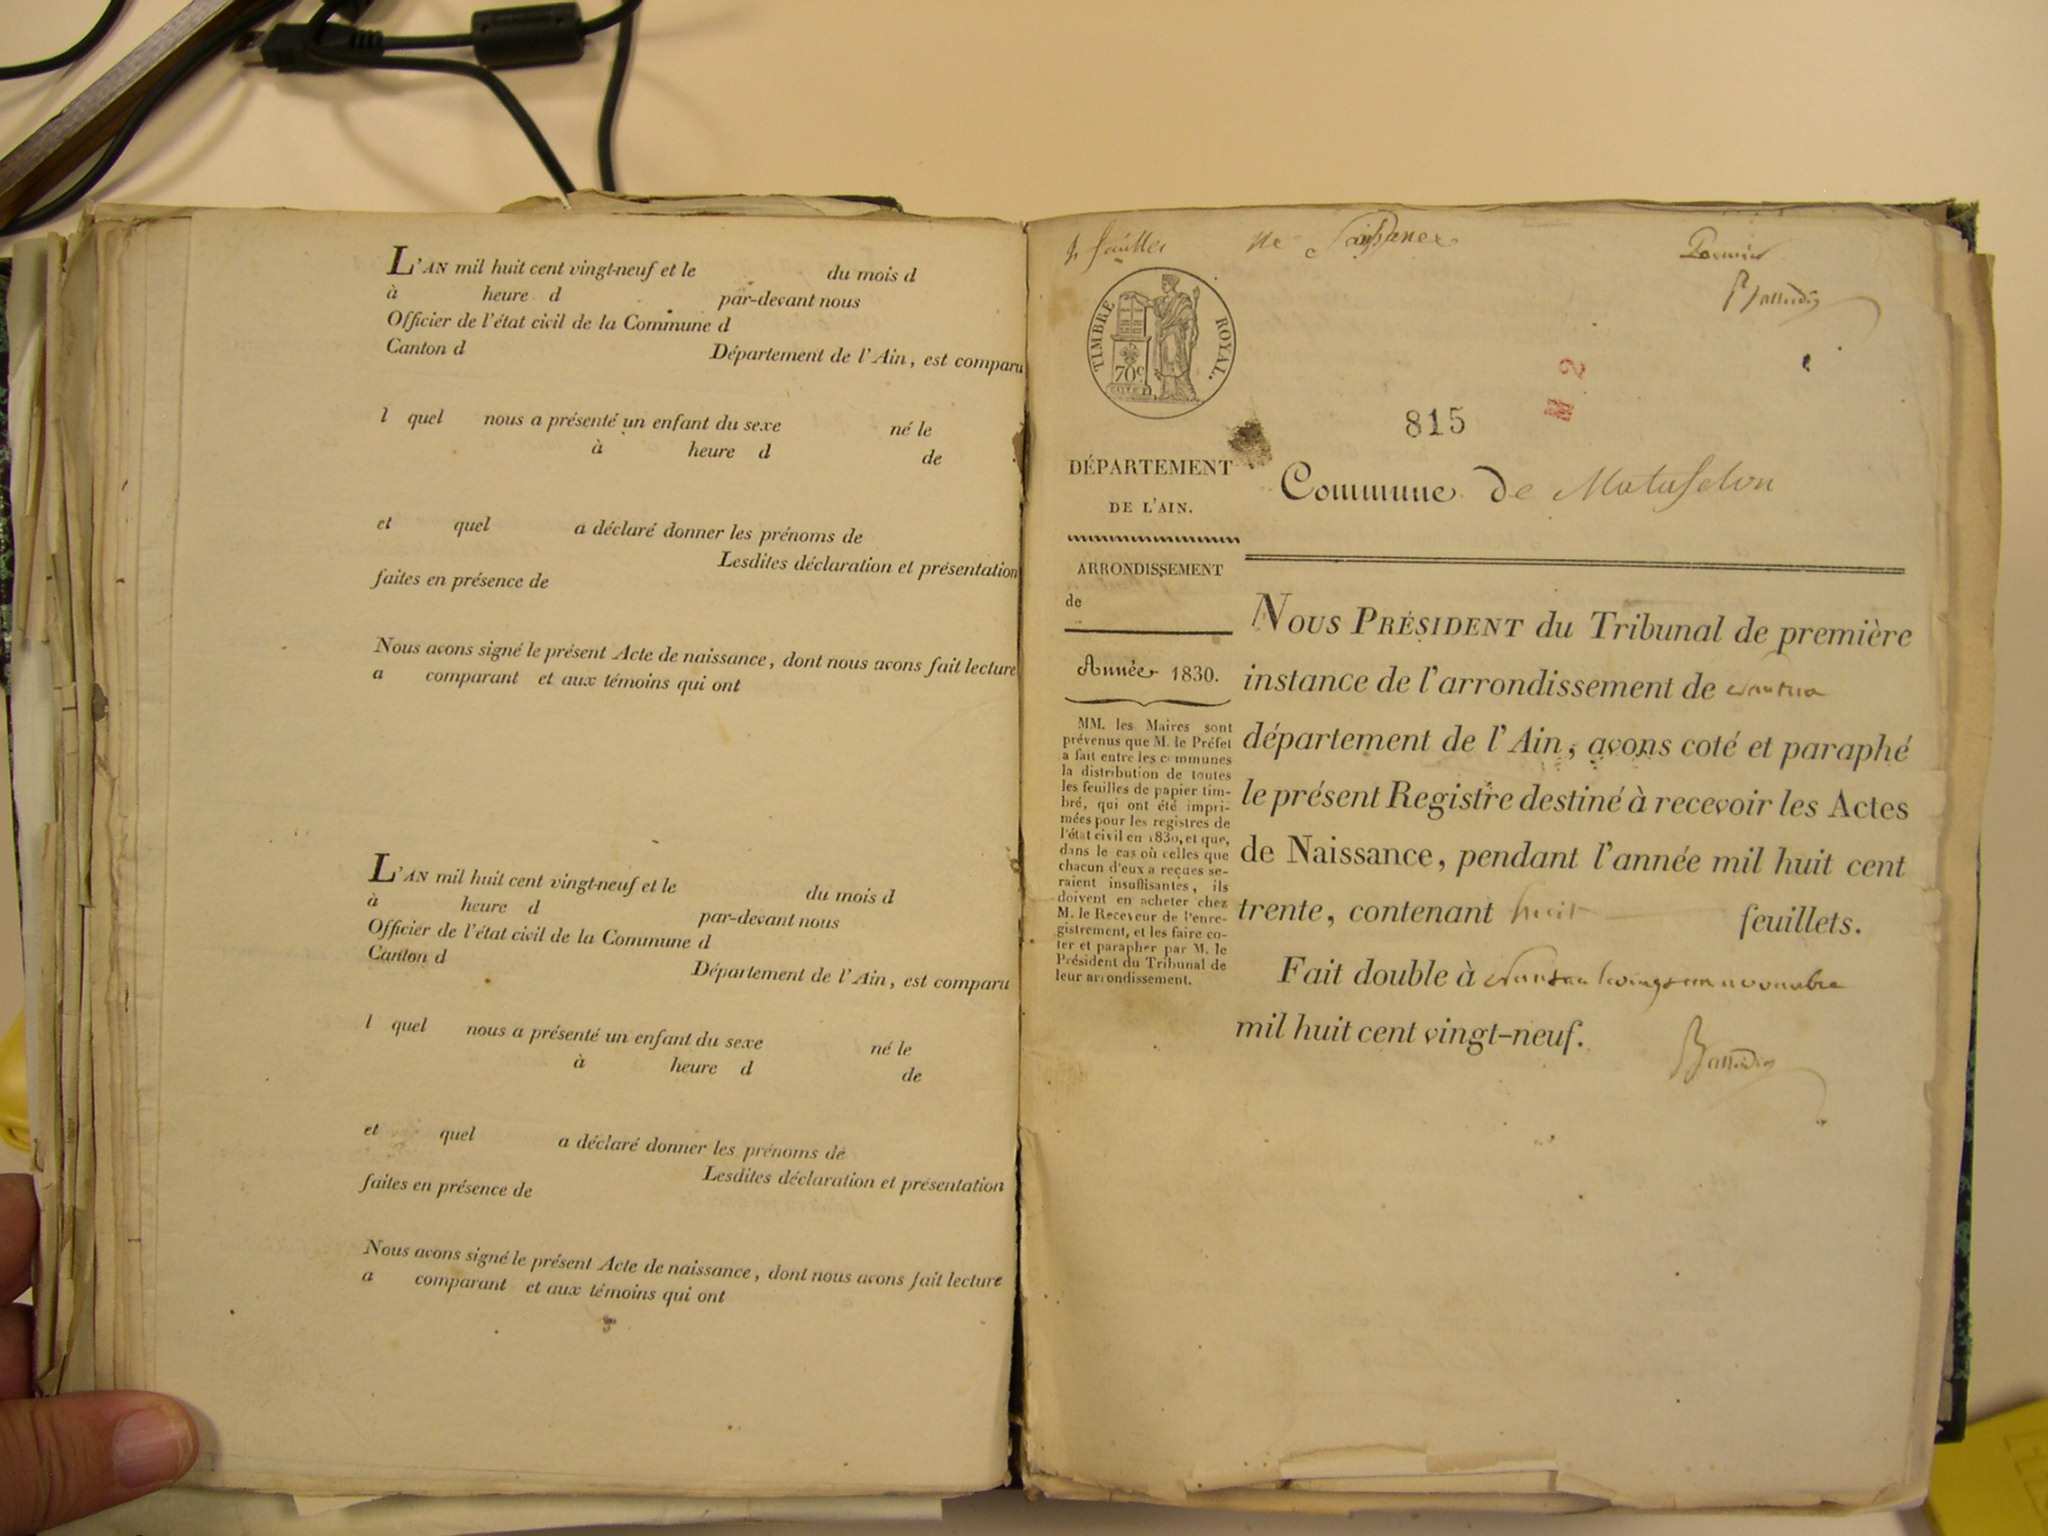 L'AN mil huit cent vingt-neuf et le du mois d
à heure d par-devant nous
Officier de l'état civil de la Commune d
Canton d Département de l'Ain, est comparu
l quel nous a présenté un enfant du sexe né le
à heure d de
et quel a déclaré donner les prénoms de
Lesdites déclaration et présentation
faites en présence de
Nous avons signé le présent Acte de naissance, dont nous avons fait lecture
a comparant et aux témoins qui ont
L'AN mil huit cent vingt-neuf et le du mois d
à heure d par-devant nous
Officier de l'état civil de la Commune d
Canton d Département de l'Ain, est comparu
l quel nous a présenté un enfant du sexe né le
à heure d de
et quel a déclaré donner les prénoms de
Lesdites déclaration et présentation
faites en présence de
Nous avons signé le présent Acte de naissance, dont nous avons fait lecture
a comparant et aux témoins qui ont
TIMBRE ROYAL.
70c
N. 2
815
DÉPARTEMENT
DE L'AIN.
Commune de Matafelon
ARRONDISSEMENT
de
Année 1830.
MM. les Maires sont
prévenus que M. le Préfet
a fait entre les communes
la distribution de toutes
les feuilles de papier tim-
bré, qui ont été impri-
mées pour les registres de
l'état civil en 1830, et que,
dans le cas où celles que
chacun d'eux a reçues se-
raient insuffisantes, ils
doivent en acheter chez
M. le Receveur de l'enre-
gistrement, et les faire co-
ter et parapher par M. le
Président du Tribunal de
leur arrondissement.
NOUS PRÉSIDENT du Tribunal de première
instance de l'arrondissement de Nantua
département de l'Ain, avons coté et paraphé
le présent Registre destiné à recevoir les Actes
de Naissance, pendant l'année mil huit cent
trente, contenant huit feuillets.
Fait double à Nantua le vingt un novembre
mil huit cent vingt-neuf.